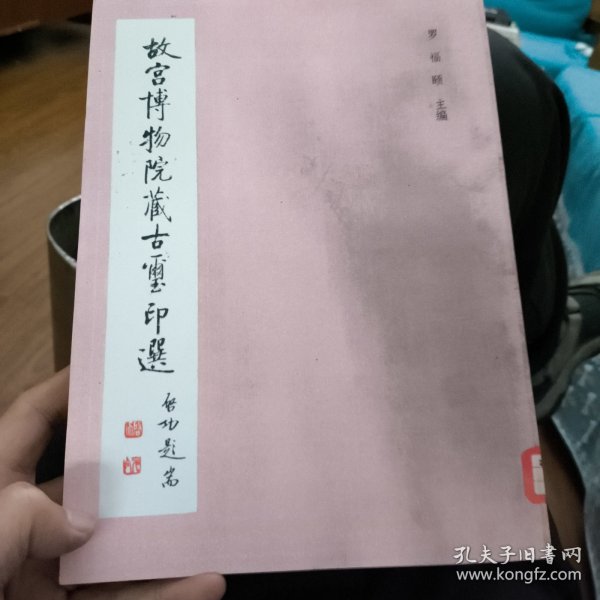 罗福颐 主编
故宫博物院藏古玺印选
启功题耑
孔夫子旧书网
www.kongfz.com